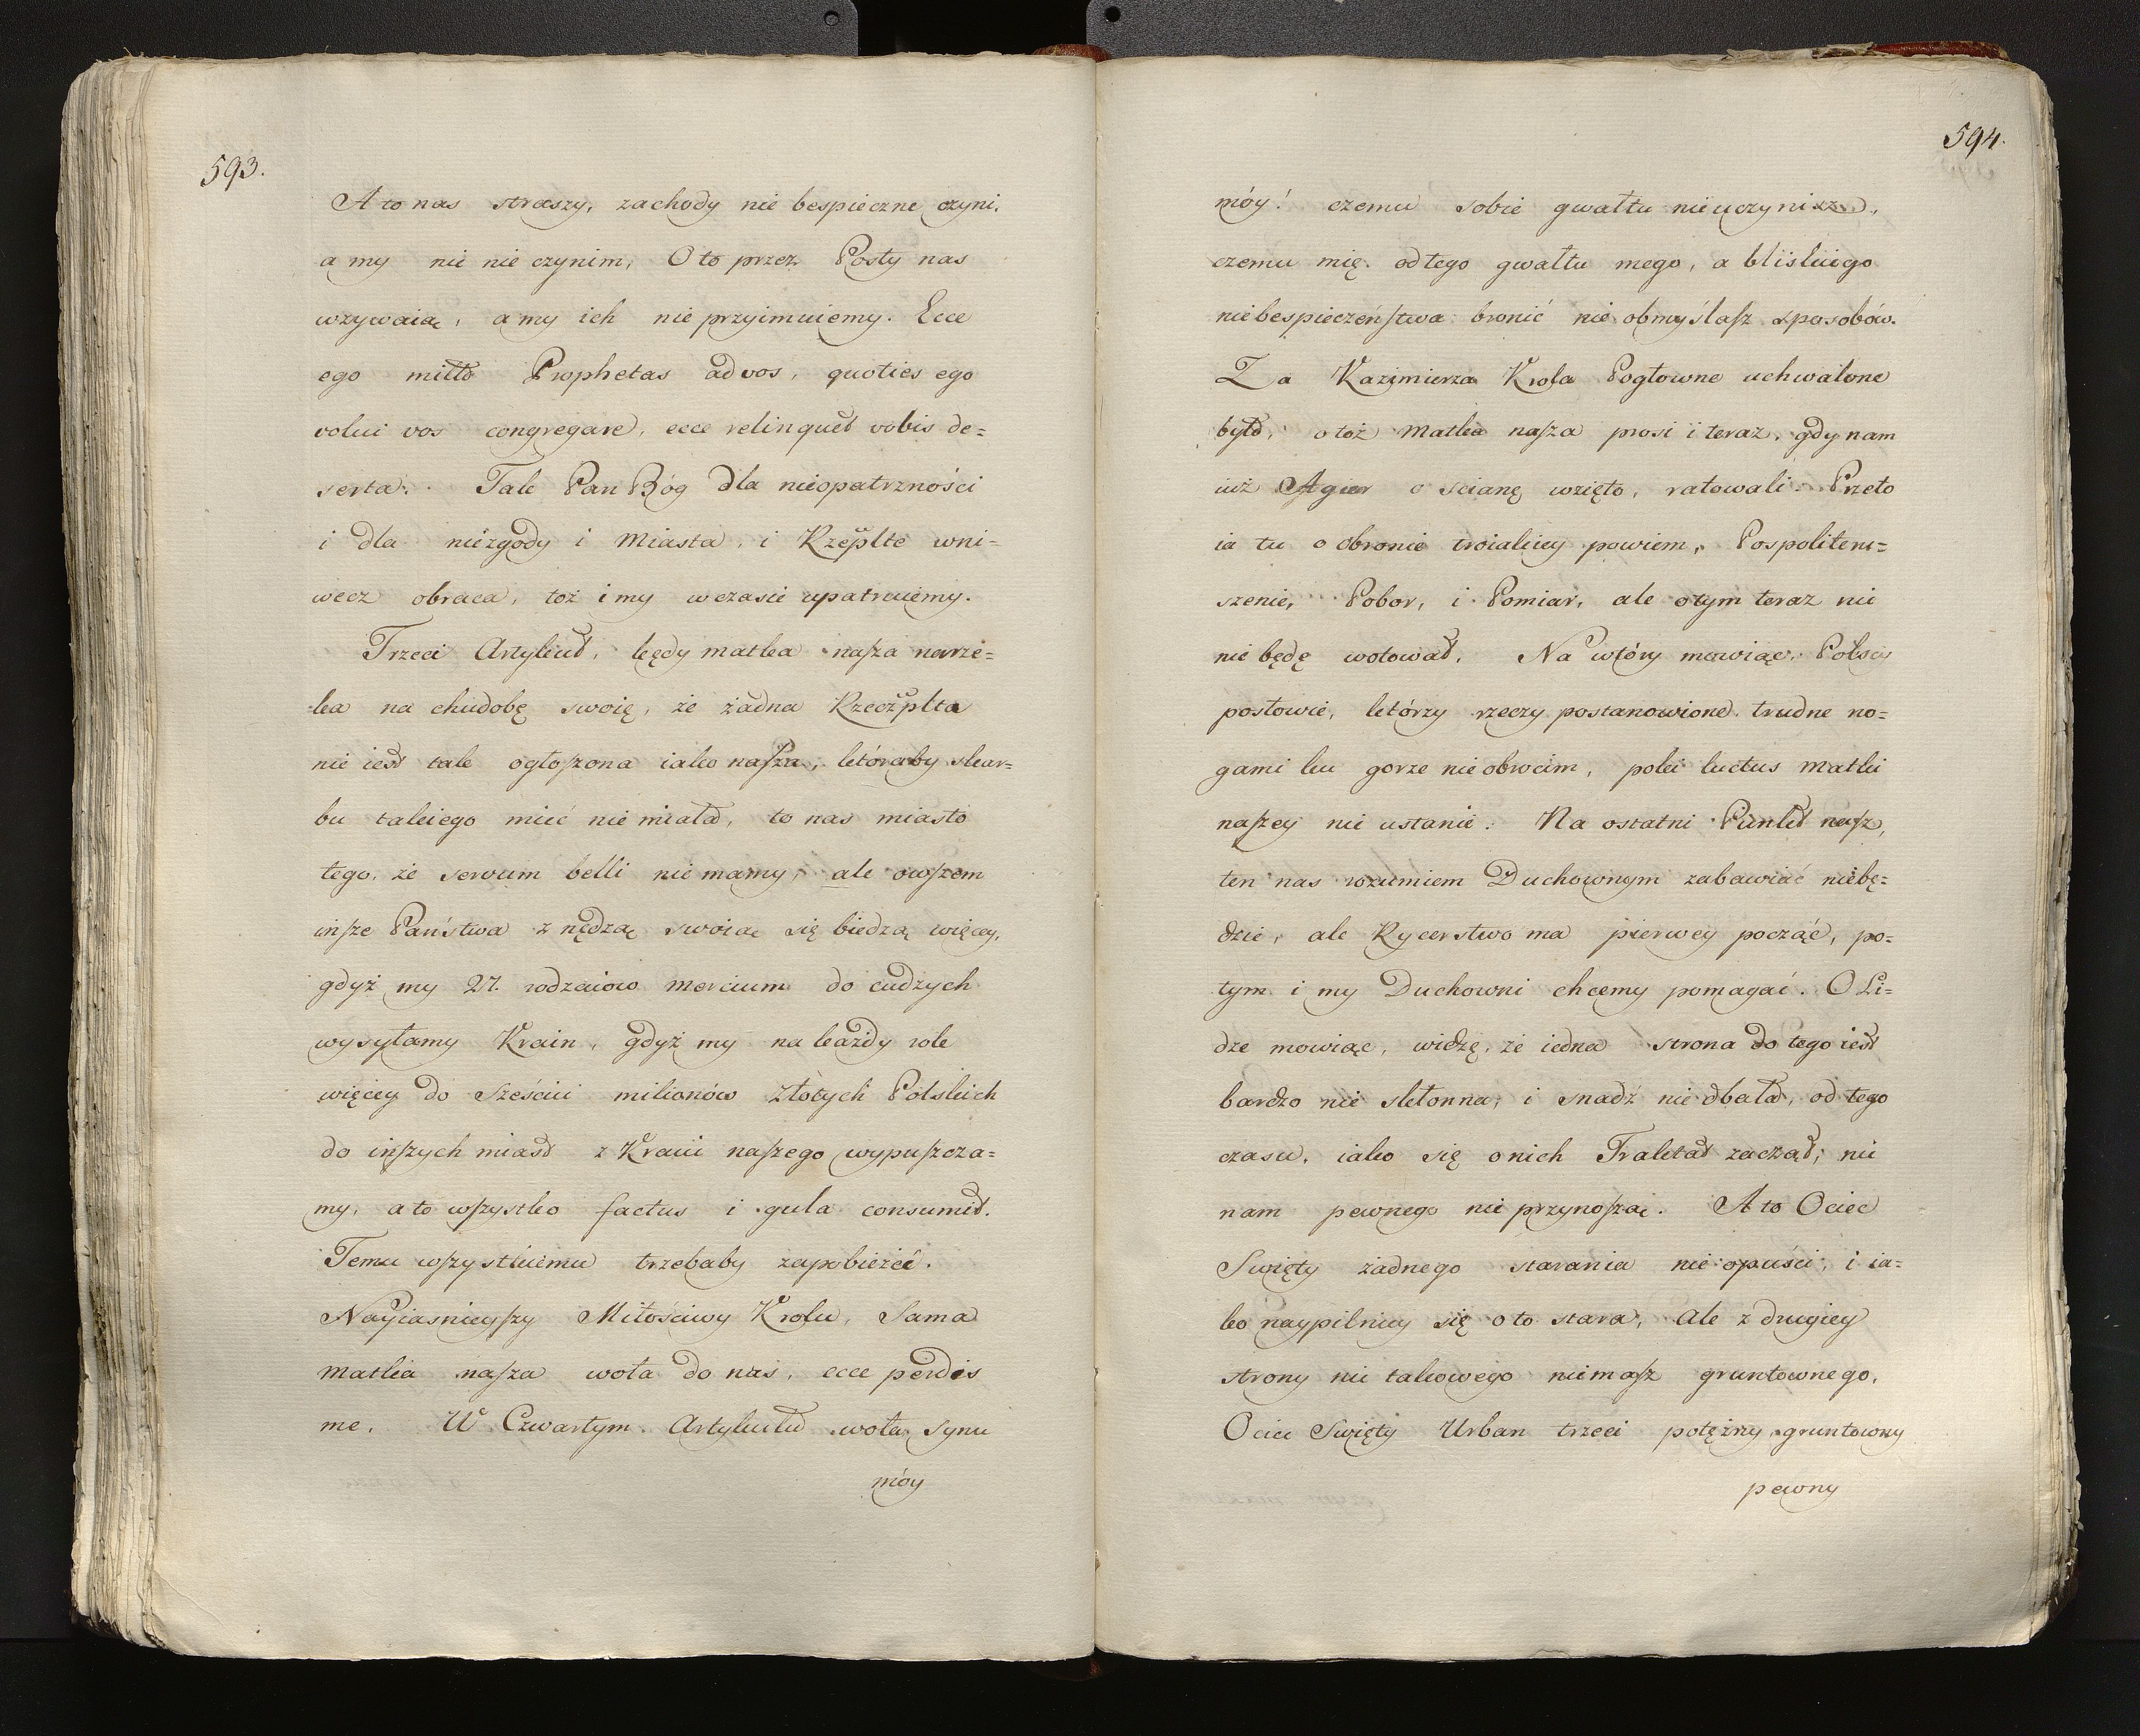 593.
A to nas straszy, zachody nie bespieczne czyni,
a my nic nie czynim, Oto przez Posły nas
wzywaią, a my ich nie przyimuiemy. Ecce
ego mitto Prophetas ad vos, quoties ego
volui vos congregare, ecce relinquet vobis de=
serta. Tak Pan Bóg dla nieopatrzności
i dla niezgody i Miasta, i Rzeplte wni=
wecz obraca, toż i my wczasie upatruiemy.
Trzeci Artykuł, kędy matka nasza narze=
ka na chudobę swoię, że żadna Rzeczplta
nie iest tak ogłoszona iako nasza, któraby skar=
bu takiego mieć nie miała, to nas miasto
tego, że servum belli nie mamy, ale owszem
insze Państwa z nędzą swoią się biedzą więcey,
gdyż my 27. rodzaiow mercium do cudzych
wysyłamy Krain, gdyż my na każdy rok
więcey do Sześciu milionów Złotych Polskich
do inszych miast z Kraiu naszego wypuszcza=
my, a to wszystko factus i gula consumit.
Temu wszystkiemu trzebaby zapobieżéć.
Nayiasnieyszy Miłościwy Krolu, Sama
matka nasza woła do nas, ecce perdis
me. W Czwartym Artykułu woła, Synu
móy
594.
móy! czemu sobie gwałtu nieuczynisz,
czemu mię od tego gwałtu mego, a bliskiego
niebespieczeństwa bronić nie obmyślasz sposobów.
Za Kazimierza Krola Pogłowne uchwalone
było, otoż Matka nasza prosi i teraz, gdy nam
iuż Ager o scianę wzięto, ratowali. Przeto
ia tu o obronie troiakiey powiem, Pospolitem=
szenie, Pobor, i Pomiar, ale o tym teraz nic
nie będę wotował. Na wtóry mowiąc, Polscy
posłowie, którzy rzeczy postanowione trudne no=
gami ku gorze nie obrocim, poki luctus Matki
naszey nie ustanie. Na ostatni Punkt nasz,
ten nas rozumiem Duchownym zabawiać niebę=
dzie, ale Rycerstwo ma pierwey począć, po=
tym i my Duchowni chcemy pomagać. O Li=
dze mowiąc, widzę, że iedna strona do tego iest
bardzo nie skłonna, i snadź nie dbała, od tego
czasu, iako się o nich Traktat zaczął, nic
nam pewnego nie przynoszą. A to Ociec
Swięty żadnego starania nie opuści, i ia=
ko naypilniey się o to stara, ale z drugiey
strony nic takowego niemasz gruntownego,
Ociec Swięty Urban trzeci potężny, gruntowny
pewny